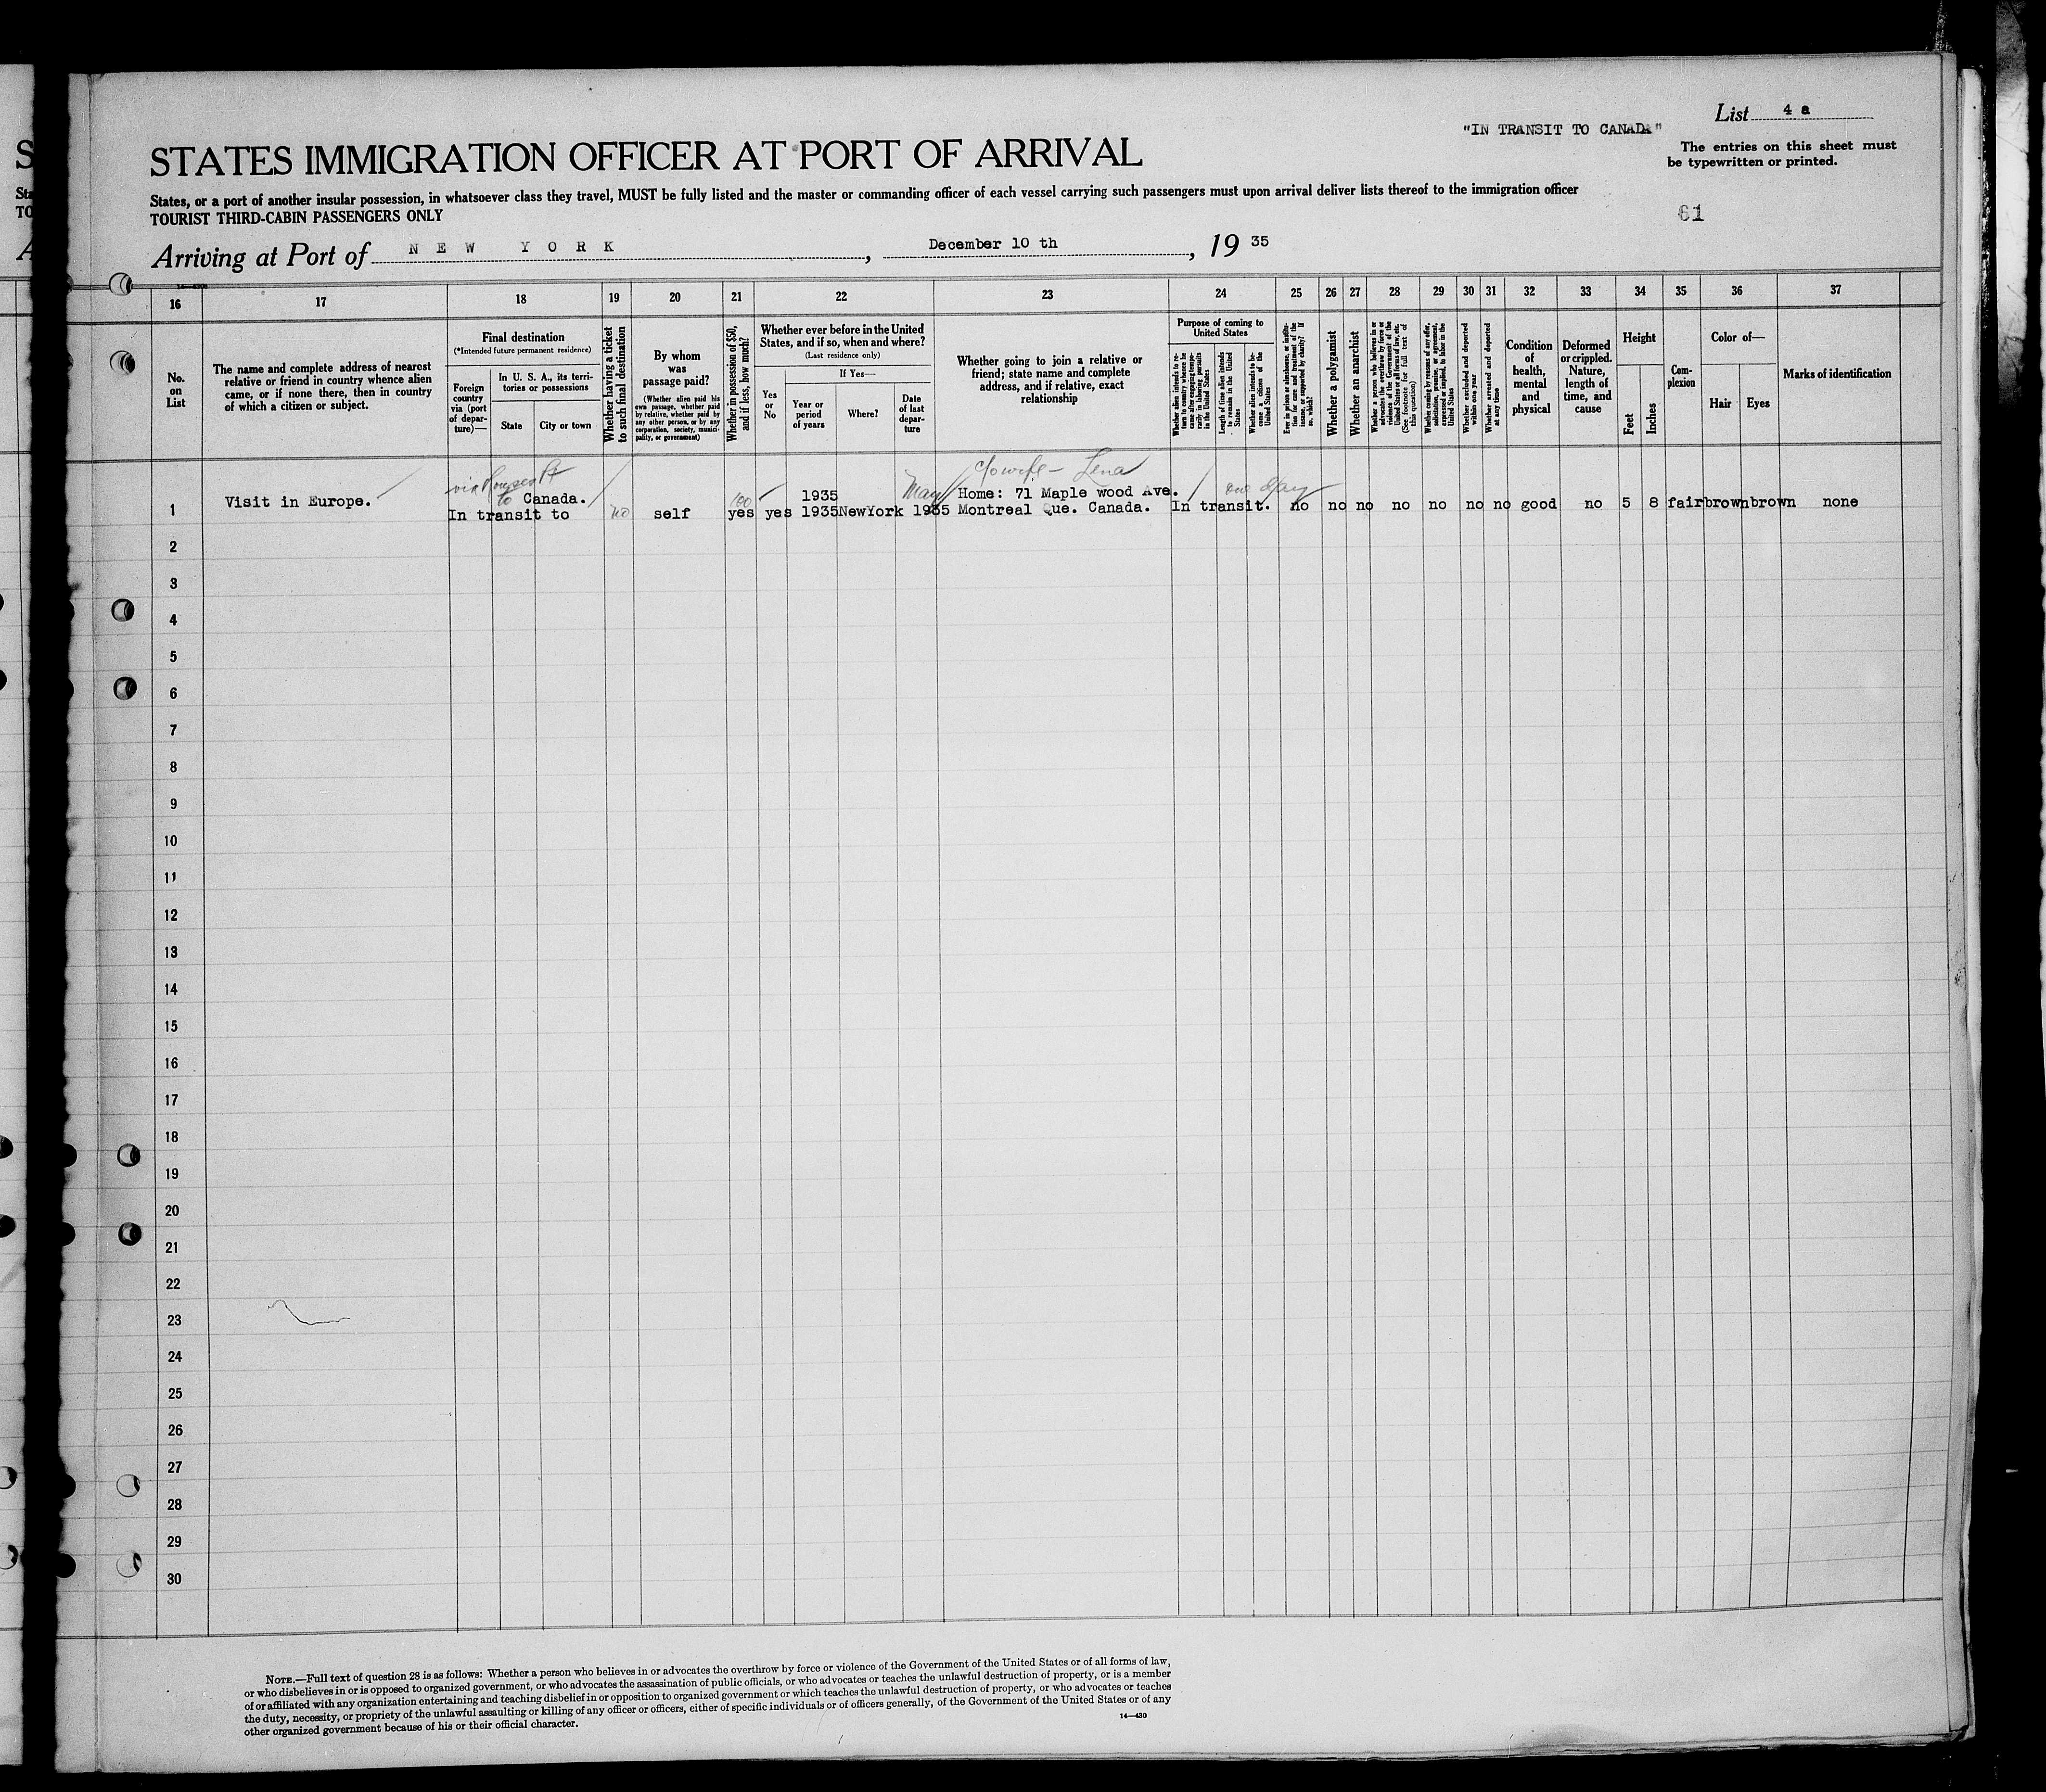 List 4 a
"IN TRANSIT TO CANADA"
STATES IMMIGRATION OFFICER AT PORT OF ARRIVAL
The entries on this sheet must
be typewritten or printed.
States, or a port of another insular possession, in whatsoever class they travel, MUST be fully listed and the master or commanding officer of each vessel carrying such passengers must upon arrival deliver lists thereof to the immigration officer
TOURIST THIRD-CABIN PASSENGERS ONLY
61
Arriving at Port of NEW YORK, December 10 th, 19 35
16 17 18 19 20 21 22 23 24 25 26 27 28 29 30 31 32 33 34 35 36 37
No.
on
List
The name and complete address of nearest
relative or friend in country whence alien
came, or if none there, then in country
of which a citizen or subject.
Final destination
(*Intended future permanent residence)
Foreign
country
via (port
of depar-
ture)—
In U. S. A., its terri-
tories or possessions
State
City or town
Whether having a ticket
to such final destination
By whom
was
passage paid?
(Whether alien paid his
own passage, whether paid
by relative, whether paid by
any other person, or by any
corporation, society, munici-
pality, or government)
Whether in possession of $50,
and if less, how much?
Whether ever before in the United
States, and if so, when and where?
(Last residence only)
Yes
or
No
If Yes—
Year or
period
of years
Where?
Date
of last
depar-
ture
Whether going to join a relative or
friend; state name and complete
address, and if relative, exact
relationship
Purpose of coming to
United States
Whether alien intends to re-
turn to country whence he
came after engaging tempo-
rarily in laboring pursuits
in the United States
Length of time alien intends
to remain in the United
States
Whether alien intends to be-
come a citizen of the
United States
Ever in prison or almshouse, or institu-
tion for care and treatment of the
insane, or supported by charity? If
so, which?
Whether a polygamist
Whether an anarchist
Whether a person who believes in or
advocates the overthrow by force or
violence of the Government of the
United States or all forms of law, etc.
(See footnote for full text of
this question)
Whether coming by reason of any offer,
solicitation, promise, or agreement,
expressed or implied, to labor in the
United States
Whether excluded and deported
within one year
Whether arrested and deported
at any time
Condition
of
health,
mental
and
physical
Deformed
or crippled.
Nature,
length of
time, and
cause
Height
Feet
Inches
Com-
plexion
Color of—
Hair
Eyes
Marks of identification
via to Canada. 100 1935 May c/o wife - Lena Home: 71 Maple wood Ave. one day
1 Visit in Europe. In transit to no self yes yes 1935 NewYork 1935 Montreal Que. Canada. In transit. no no no no no no no good no 5 8 fair brown brown none
2
3
4
5
6
7
8
9
10
11
12
13
14
15
16
17
18
19
20
21
22
23
24
25
26
27
28
29
30
NOTE.—Full text of question 28 is as follows: Whether a person who believes in or advocates the overthrow by force or violence of the Government of the United States or of all forms of law,
or who disbelieves in or is opposed to organized government, or who advocates the assassination of public officials, or who advocates or teaches the unlawful destruction of property, or is a member
of or affiliated with any organization entertaining and teaching disbelief in or opposition to organized government or which teaches the unlawful destruction of property, or who advocates or teaches
the duty, necessity, or propriety of the unlawful assaulting or killing of any officer or officers, either of specific individuals or of officers generally, of the Government of the United States or of any
other organized government because of his or their official character.
14—430